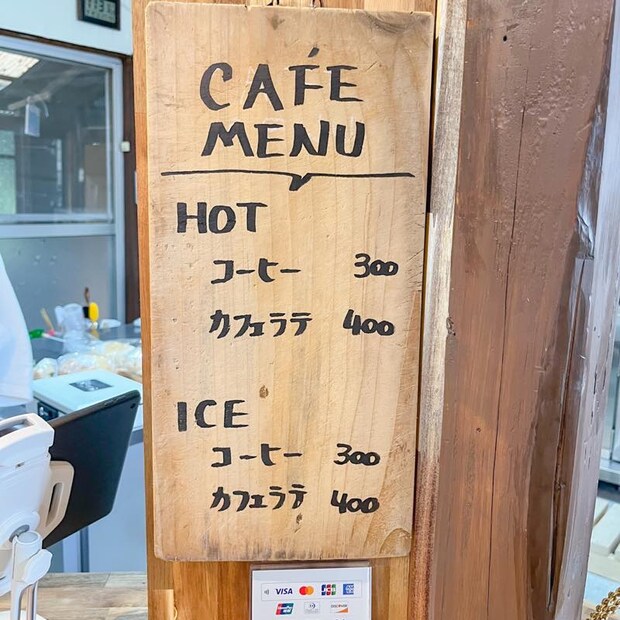 CAFÉ
MENU
HOT
コーヒー 300
カフェラテ 400
ICE
コーヒー 300
カフェラテ 400
VISA
JCB
DISCOVER